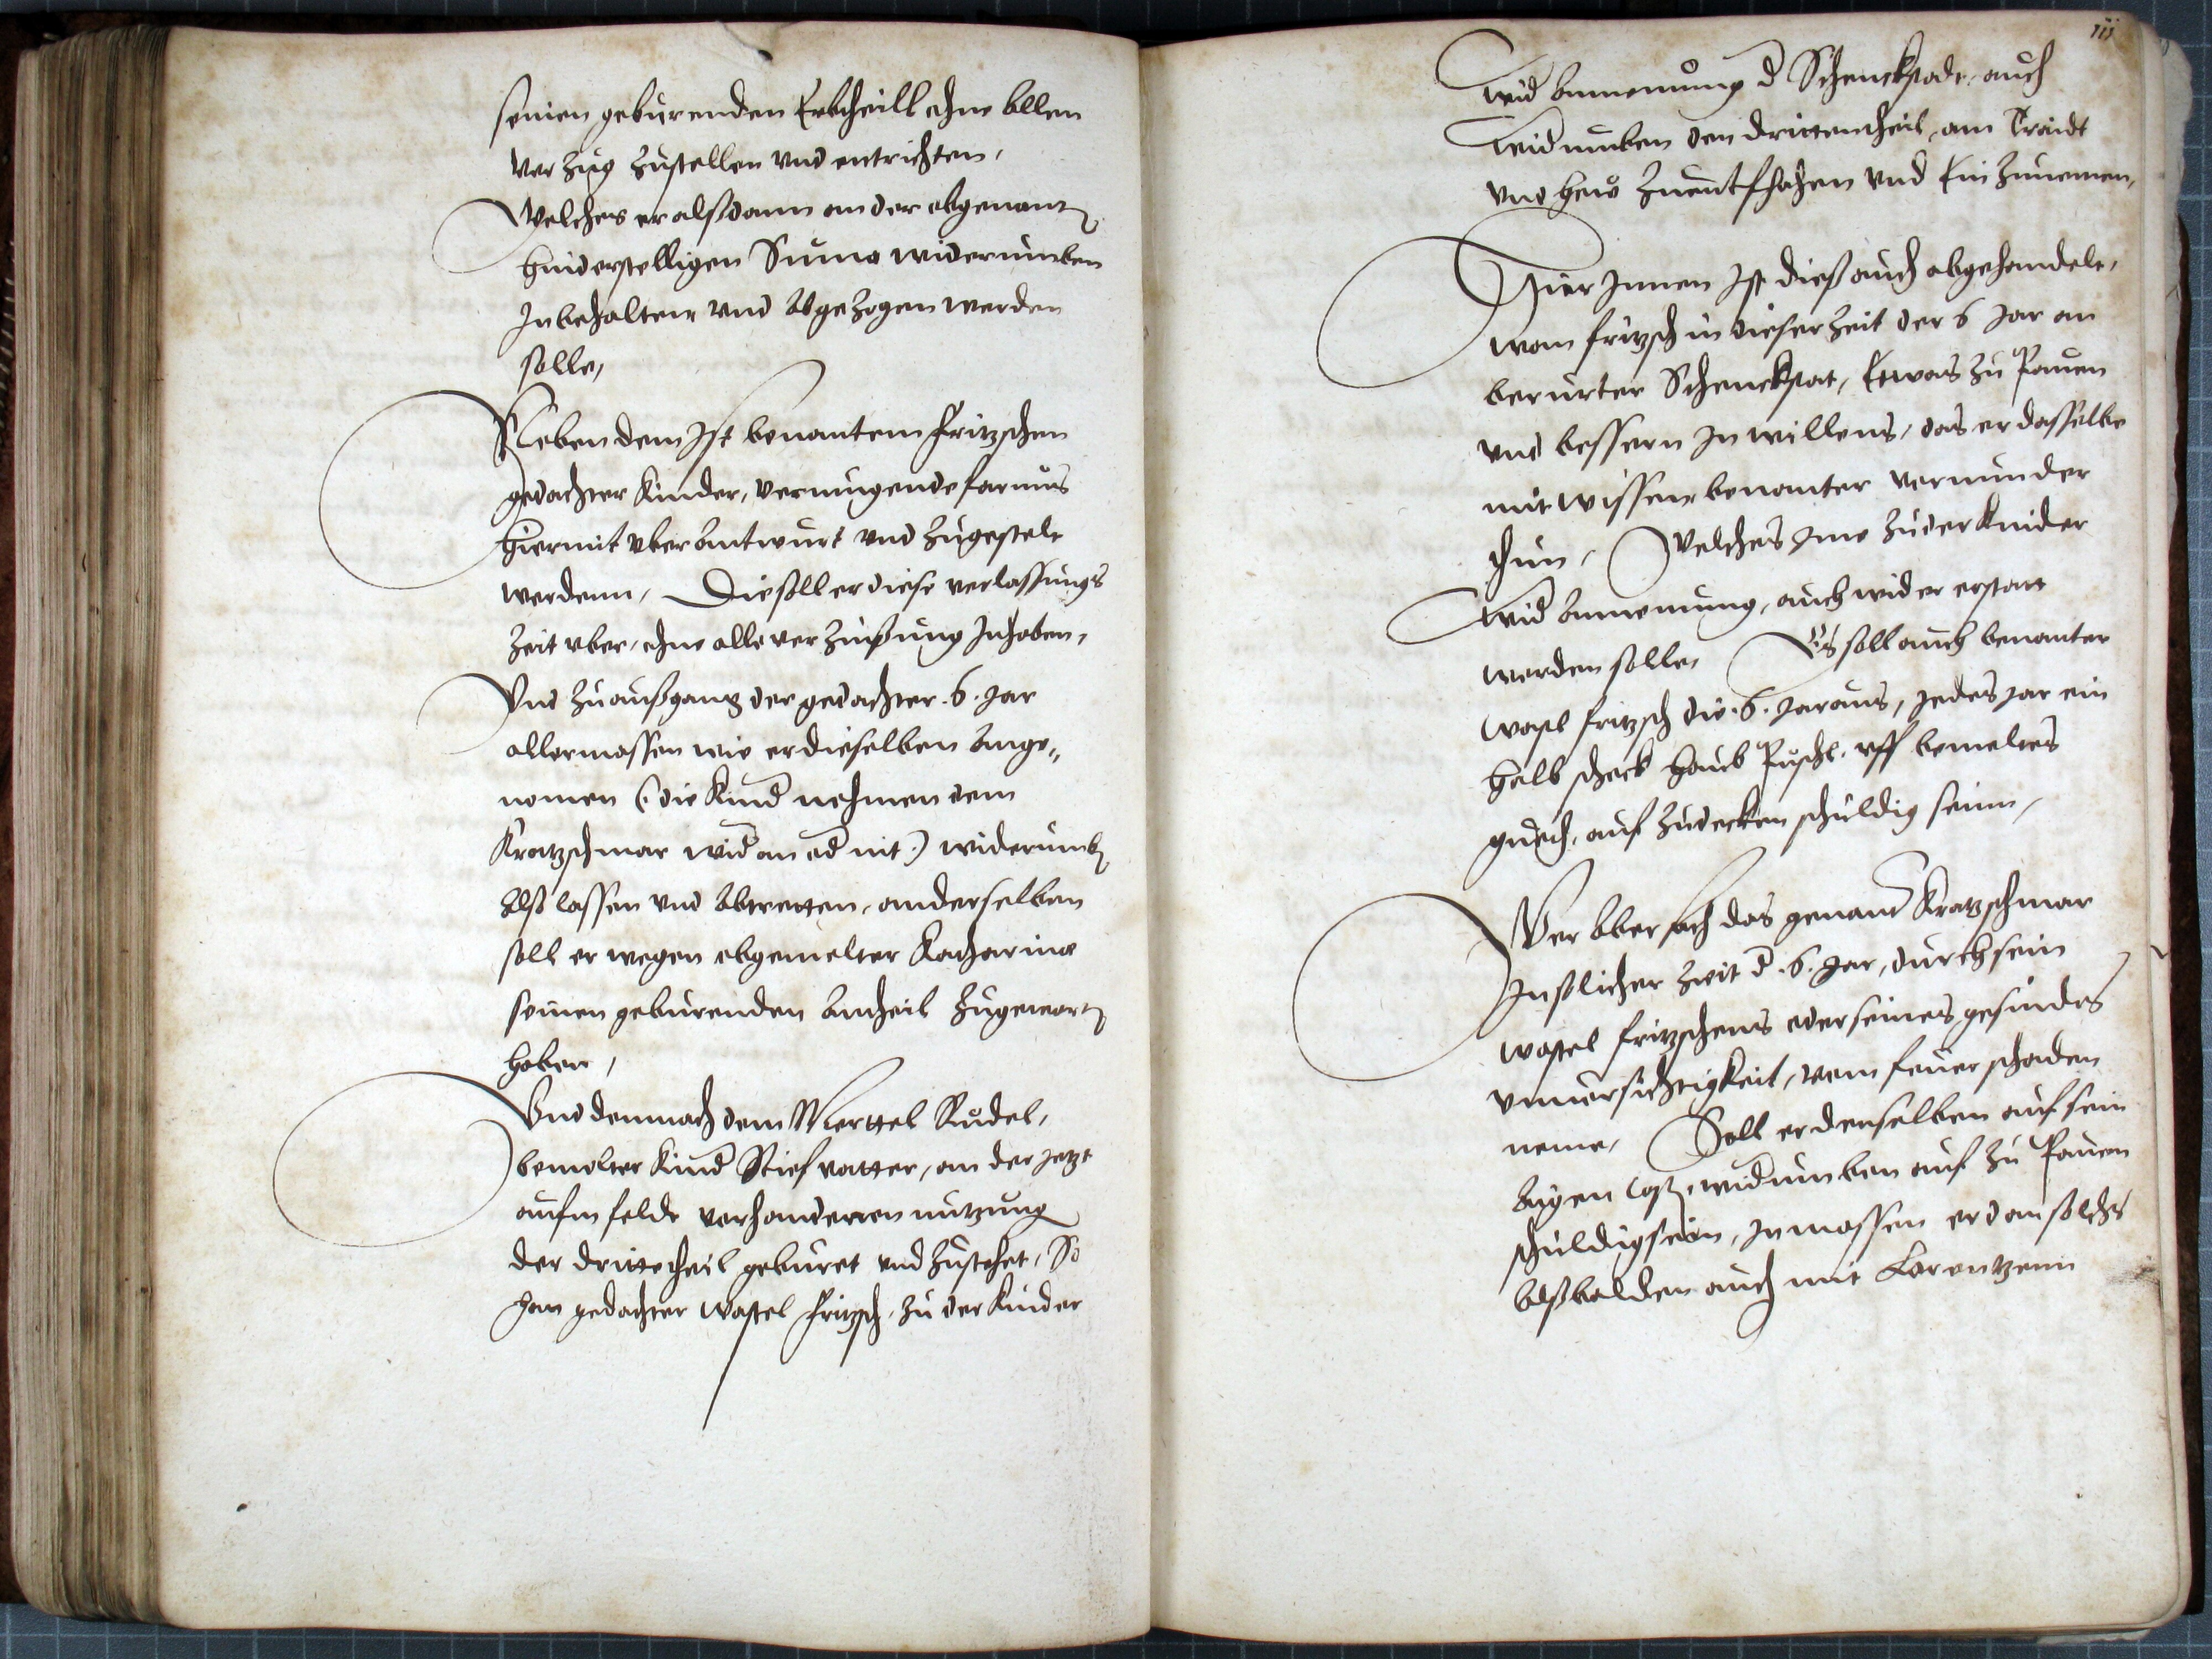 seinen geburenden Erbtheill ohne allen
verzug zustellen vnd entrichten,
Welches er alßdann an der obgenant
hinderstelligen Suma widerumben
Inbehalten vnd abgezogen werden
solle,
Neben dem Ist benantem fritzschen
gedachter kinder, vermugende farnus
hiermit vberantwurt vnd zugestelt
werdenn, Die soll er diese verlassungs
Zeit vber, ohne alle verzinßung Inhaben,
Vnd zu außgang der gedachter .6. Jar
allermassen wie er dieselben ange„
nomen (: die kind nehmen dem
Kratzschmar wid an od nit :) widerumb
alß lassen vnd abtretten, an derselben
soll er wegen obgemelter Katharina
seinen geburenden antheil zugewart
haben,
Vnd demnach dem Merttel Rudel,
bemelter kind Stiefvatter, an der jetzt
aufm felde verhandenen nutzung
der dritte theil geburet vnd zustehet, So
hat gedachter wastel fritzsch, zu der kinder
iij
wid annemung d Schenckstadt, auch
widrumben den drittentheil, am Traidt
vnd heuo zuentfhahen vnd Einzunemen,
Hier Innen Ist dieß auch abgehandelt,
wan fritzsch in dieser Zeit der 6 Jar an
berurter Schenckstat, Etwas zu Pauen
vnd bessern In willens, das er dasselbe
mit wissen benanter vormunder
thun, Welches Ime zu der kinder
wid annemung, auch wider erstatt
werden solle, Es soll auch benanter
wastl fritzsch die .6. Jar aus, jedes Jar ein
halb schock haub Puscht, vff bemeltes
gueth, auf zudecken schuldig seinn,
Wer aber sach das genant Kratzschmar
In solicher Zeit d .6. Jar, durch sein
wastel fritzschens oder seines gesindes
vnuorsichtigkeit, vom feuer schaden
neme, Soll er denselben auf sein
aigen Cost, widrumben auf zu Pauen
schuldig sein, Inmassen er dan solchs
alßbalden auch mit Lorentzenn